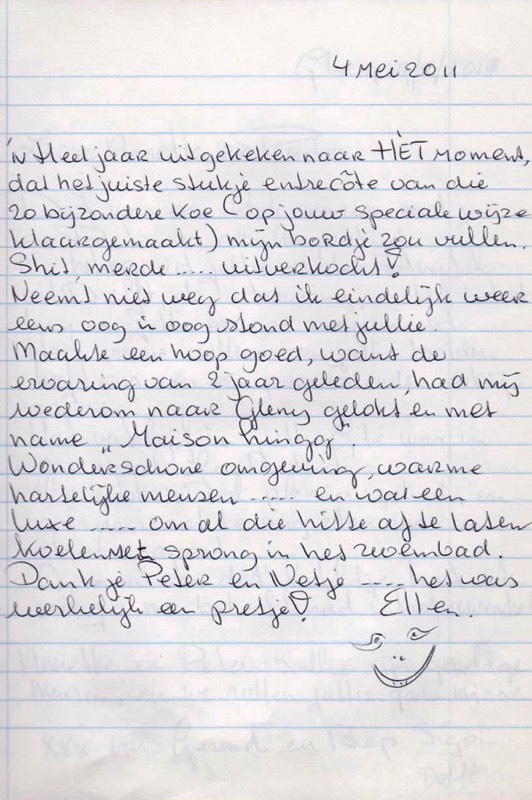 4 Mei 2011
'n Heel jaar uitgekeken naar HÈT Moment,
dat het juiste stukje entrecôte van die
zo bijzondere koe (op jouw speciale wijze
klaargemaakt) mijn bordje zou vullen.
Shit, merde ..... uitverkocht!
Neemt niet weg dat ik eindelijk weer
eens oog in oog stond met jullie.
Maakte een hoop goed, want de
ervaring van 2 jaar geleden, had mij
wederom naar Gleny gelokt en met
name „Maison
Wonderschone omgeving, warme
hartelijke mensen ..... en wat een
luxe ..... om al die hitte af te laten
koelen met sprong in het zwembad.
Dank je Peter en Netje ..... het was
werkelijk een pretje! Ellen.